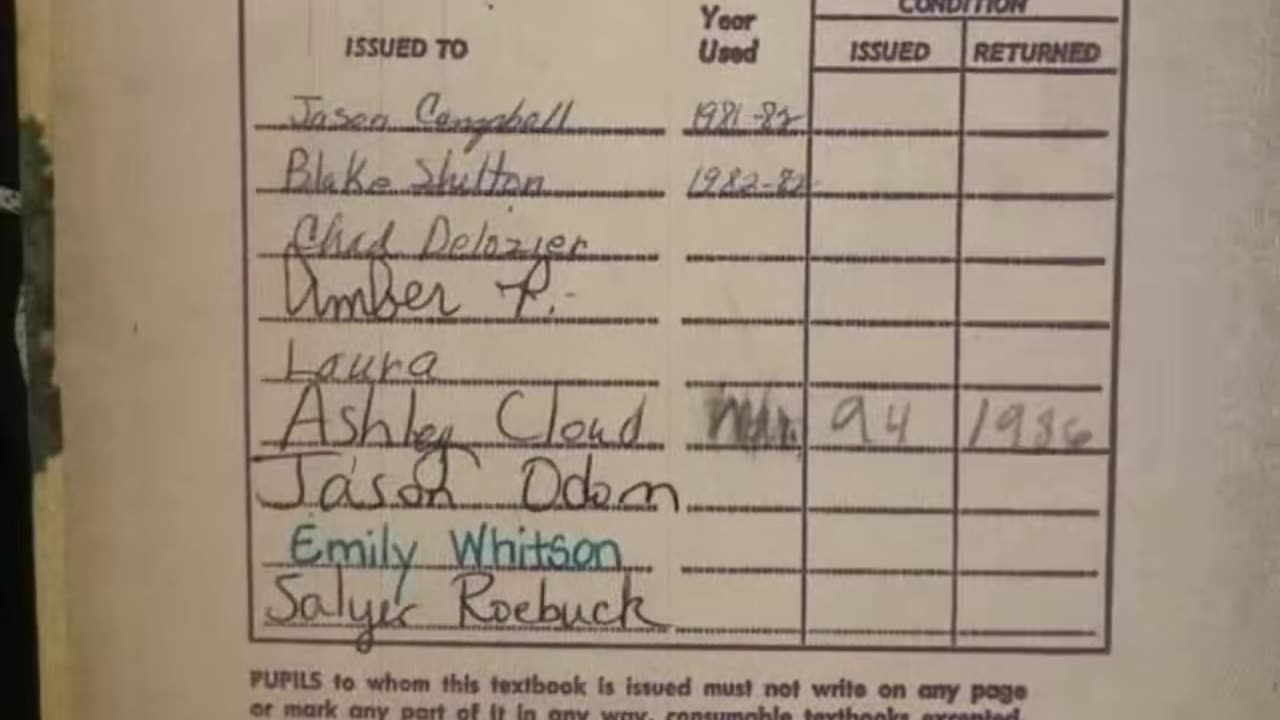 CONDITION
ISSUED TO Year Used ISSUED RETURNED
Jason Campbell 1981-82
Blake Shelton 1982-82
Chad Delozier
Amber P.
Laura
Ashley Cloud 94 1986
Jason Odom
Emily Whitson
Salyer Roebuck
PUPILS to whom this textbook is issued must not write on any page
or mark any part of it in any way, consumable textbooks excepted.